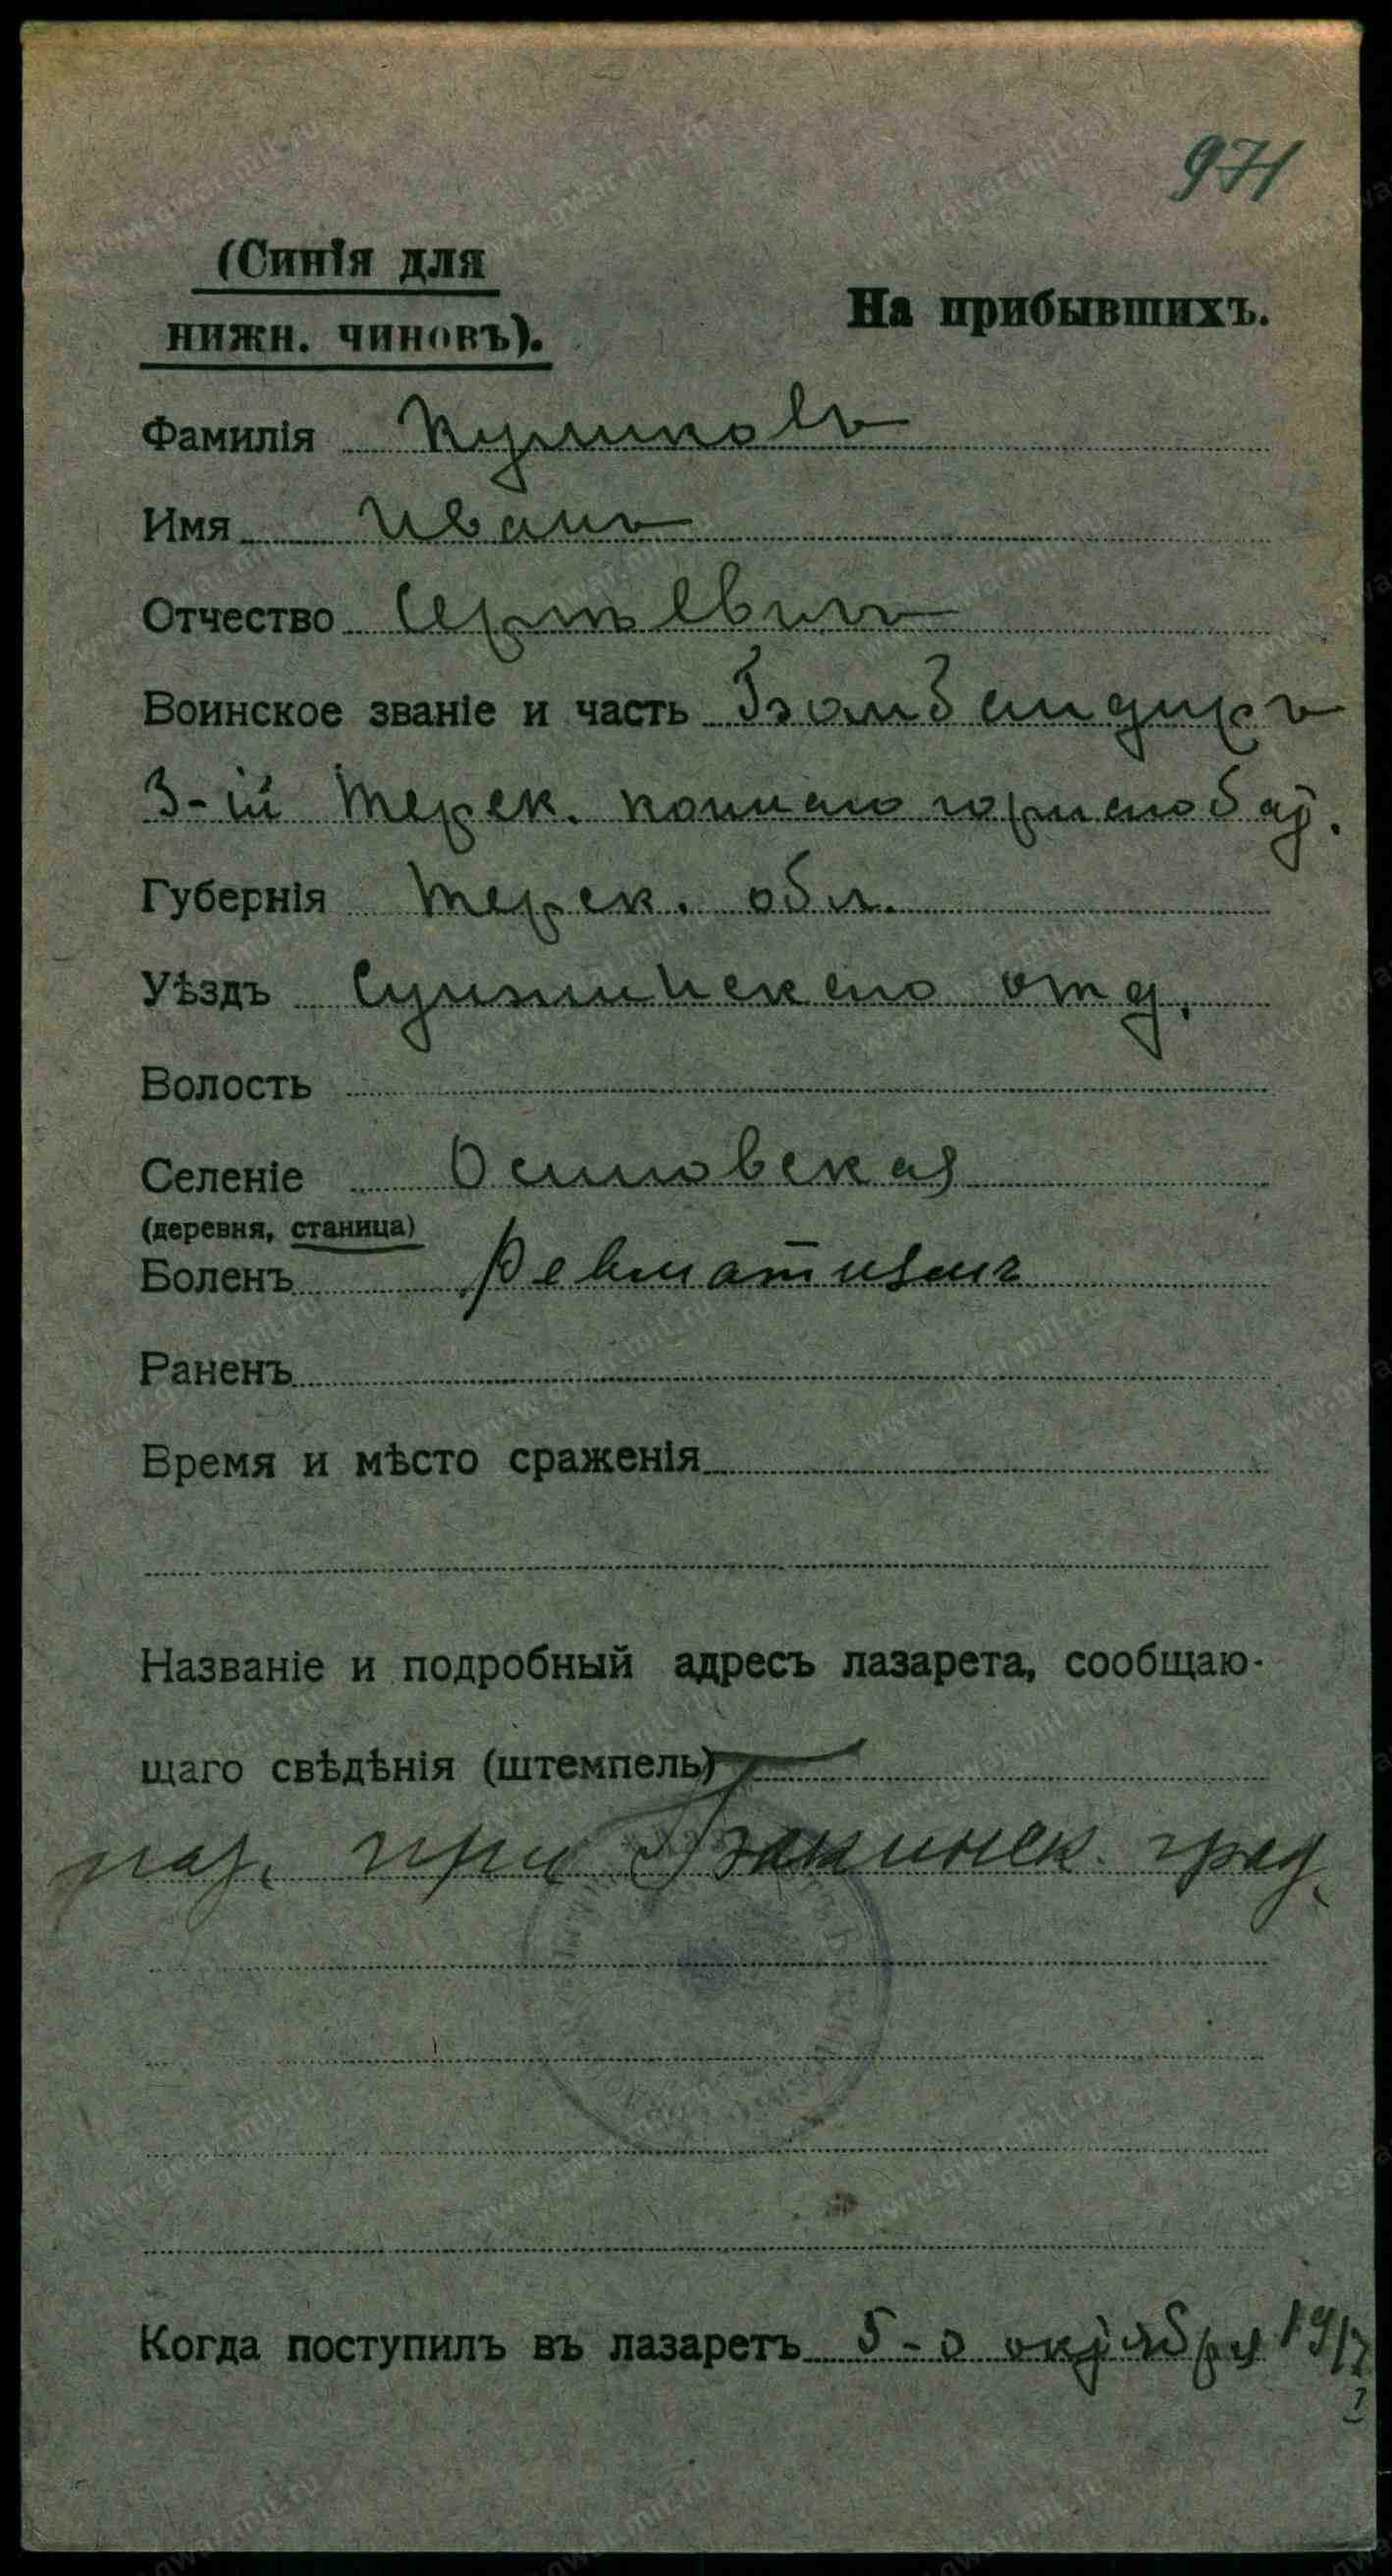 971
(Синія для
нижн. чиновъ).
На прибывшихъ.
Фамилія Куликовъ
Имя Иванъ
Отчество Сергѣевичъ
Воинское званіе и часть Бомбандиръ
3-ій Терек. конно горно бат.
Губернія Терек. обл.
Уѣздъ Сунженскаго отд.
Волость
Селеніе
(деревня, станица)
Боленъ Ревматизмъ
Раненъ
Время и мѣсто сраженія
Названіе и подробный адресъ лазарета, сообщаю-
щаго свѣдѣнія (штемпель)
лаз. при Бакинск. град.
Когда поступилъ въ лазаретъ 5-го октября 1917